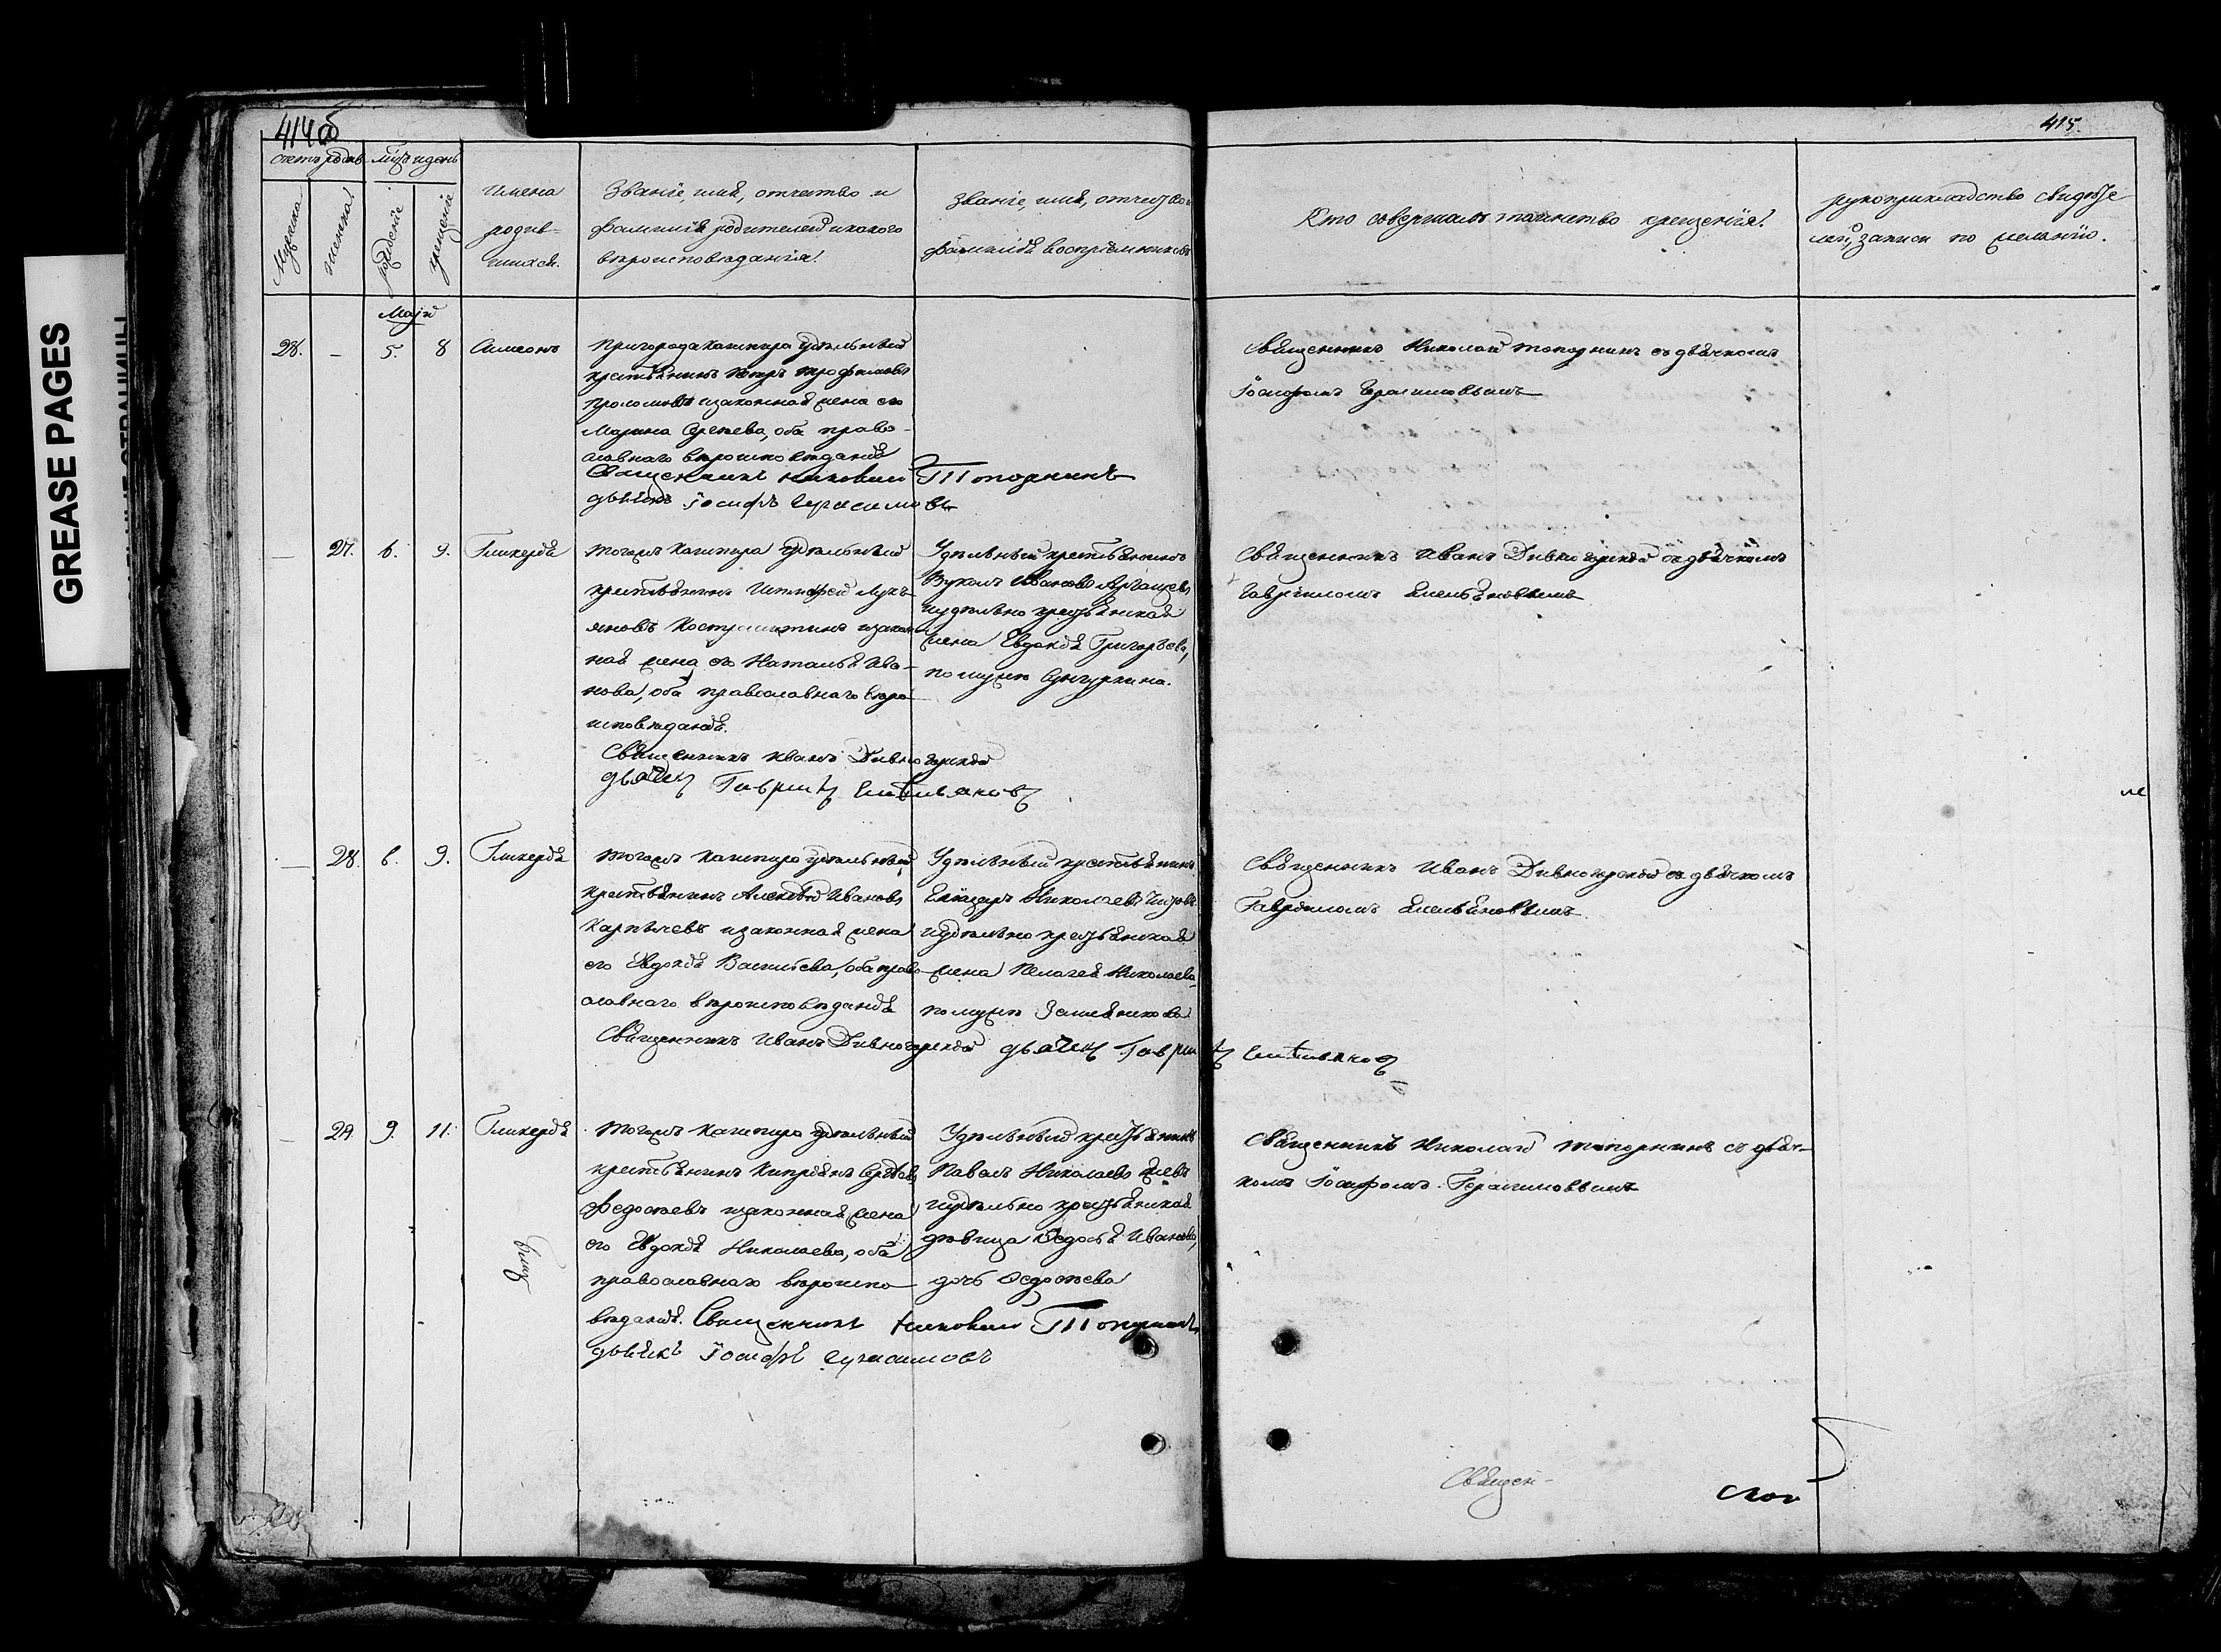 414об
415.
GREASE PAGES
счетъ родив. мцъ и день
Мужска
женска
рожденіе
крещеніе
Имена
родив-
шихся.
Званіе, имя, отчество и
фамилія родителей и какого
вѣроисповѣданія.
Званіе, имя, отчество и
фамилія воспріемниковъ
Кто совершалъ таинство крещенія.
рукоприкладство свидѣте
лей, записи по желанію.
Маій
28. – 5. 8 Симеонъ
Пригорода Кашпира удѣльный
крестьянинъ Петръ Трофимовъ
и законная жена его
Марина Сергеева, оба право-
славнаго вѣроисповѣданія
Священникъ Николай Топорнинъ
дьячекъ Іосифъ Герасимовъ
Священникъ Николай Топорнинъ съ дьячкомъ
Іосифомъ Герасимовымъ
– 27. 6. 9. Гликерія
Тогожъ Кашпира удѣльный
крестьянинъ Лукь-
яновъ и закон
ная жена его Наталья Ива-
нова, оба православнаго вѣро
исповѣданія.
Священникъ Иванъ Дивногорскій
дьячекъ Гаврилъ Емельяновъ
Удѣльный крестьянинъ
Вуколъ Ивановъ
и удѣльно крестьянская
жена Евдокія Григорьева,
по мужѣ
Священникъ Иванъ Дивногорскій съ дьячкомъ
Гавріиломъ Емельяновымъ
– 28. 6. 9. Гликерія
Тогожъ Кашпира удѣльный
крестьянинъ Алексѣй Ивановъ
Карпычевъ и законная жена
его Евдокія Васильева, оба право-
славнаго вѣроисповѣданія
Священникъ Иванъ Дивногорскій дьячекъ Гаврилъ Емельяновъ
Удѣльный крестьянинъ
Елиазаръ Николаевъ
и удѣльно крестьянская
жена Пелагея Николаева,
по мужѣ
Священникъ Иванъ Дивногорскій съ дьячкомъ
Гавріиломъ Емельяновымъ.
– 29. 9. 11. Гликерія
Тогожъ Кашпира удѣльный
крестьянинъ Кипріянъ Сергѣевъ
Федосѣевъ и законная жена
его Евдокія Николаева, оба
православнаго вѣроиспо-
вѣданія. Священникъ Николай Топорнинъ
дьячекъ Іосифъ Герасимовъ
Удѣльный крестьянинъ
Павелъ Николаевъ
и удѣльно крестьянская
дѣвица Ѳедосья Иванова,
дочь Ѳедосѣева
Священникъ Николай Топорнинъ съ дьяч-
комъ Іосифомъ Герасимовымъ
Священ-